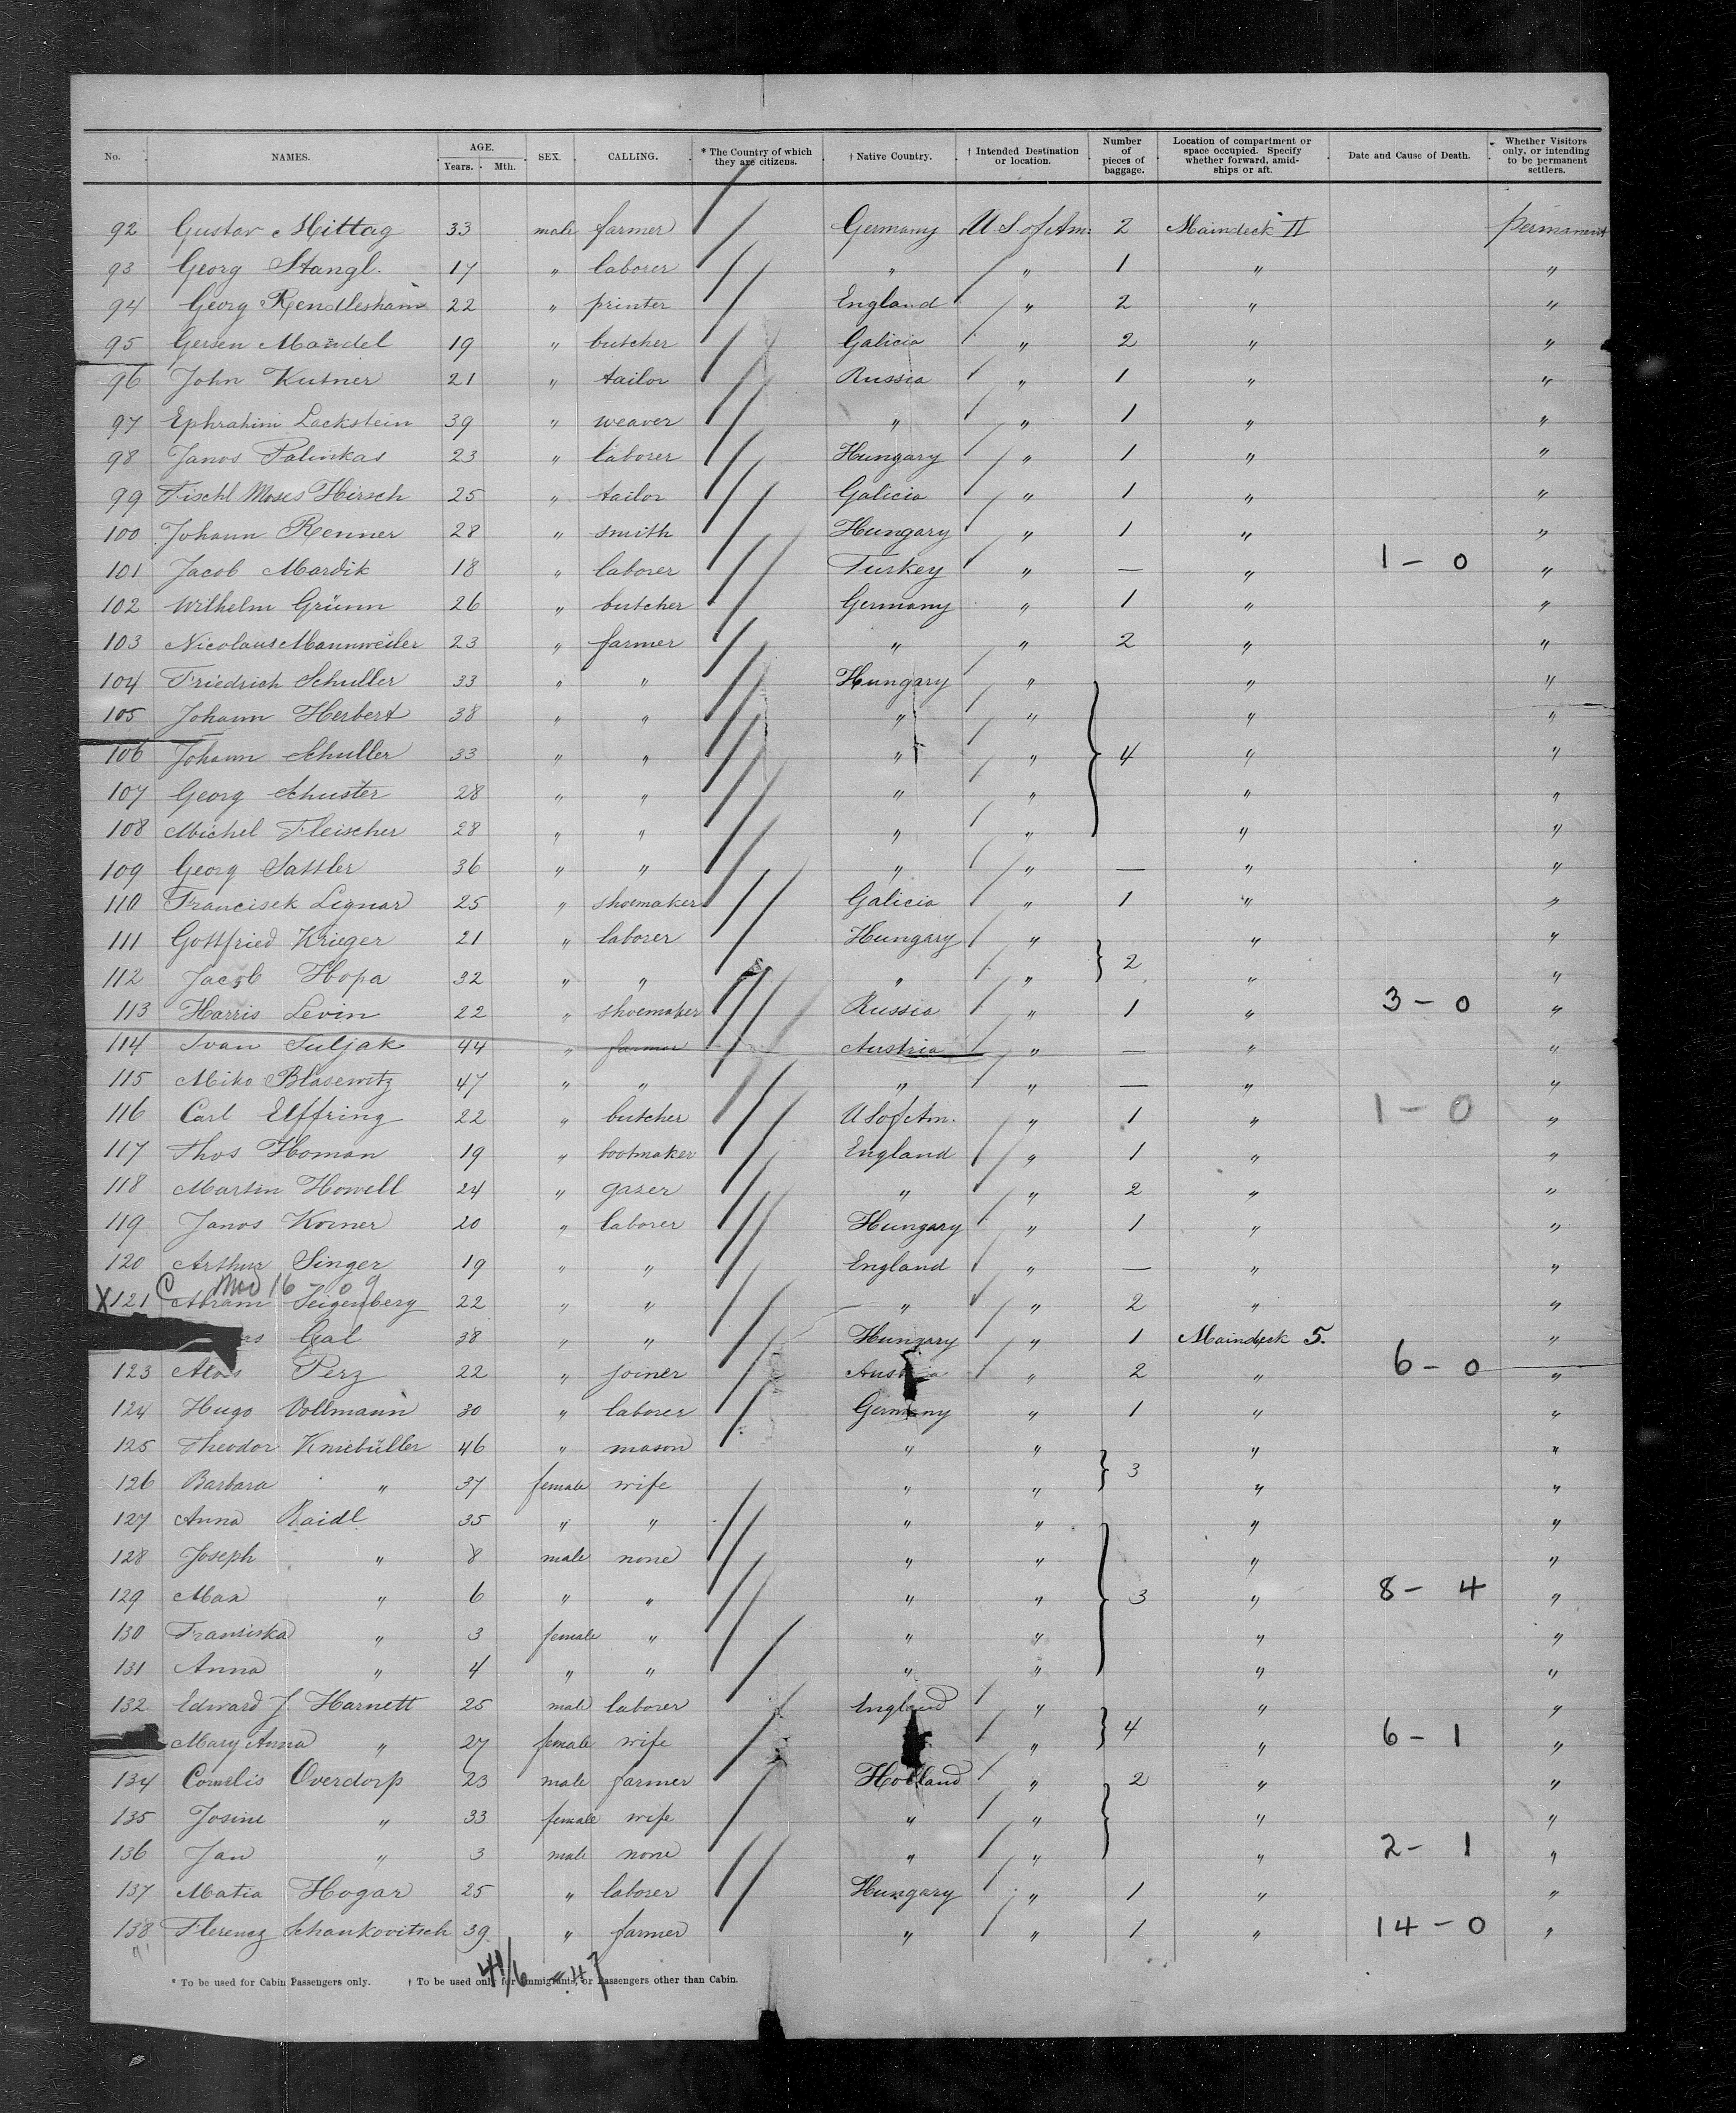 No. NAMES. AGE. Years. Mth. SEX. CALLING. * The Country of which they are citizens. † Native Country. † Intended Destination or location. Number of pieces of baggage. Location of compartment or space occupied. Specify whether forward, amid-ships or aft. Date and Cause of Death. Whether Visitors only, or intending to be permanent settlers.
92 Gustav Mittag 33 male farmer Germany U S of Am. 2 Maindeck II permanent
93 Georg Stangl. 17 " laborer " " 1 " "
94 Georg Rendlesham 22 " printer England " 2 " "
95 Gersen Mandel 19 " butcher Galicia " 2 " "
96 John Kutner 21 " tailor Russia " 1 " "
97 Ephrahim Lackstein 39 " weaver " " 1 " "
98 Janos Palinkas 23 " laborer Hungary " 1 " "
99 Fischl Moses Hirsch 25 " tailor Galicia " 1 " "
100 Johann Renner 28 " smith Hungary " 1 " "
101 Jacob Mardik 18 " laborer Turkey " — " 1 - 0 "
102 Wilhelm Grünn 26 " butcher Germany " 1 " "
103 Nicolaus Mannweiler 23 " farmer " " 2 " "
104 Friedrich Schuller 33 " " Hungary " " "
105 Johann Herbert 38 " " " " " "
106 Johann Schuller 33 " " " " 4 " "
107 Georg Schuster 28 " " " " " "
108 Michel Fleischer 28 " " " " " "
109 Georg Sattler 36 " " " " — " "
110 Francisek Lignar 25 " shoemaker Galicia " 1 " "
111 Gottfried Krieger 21 " laborer Hungary " 2 " "
112 Jacob Hopa 32 " " " " " "
113 Harris Levin 22 " shoemaker Russia " 1 " 3 - 0 "
114 Ivan Suljak 44 " farmer Austria " — " "
115 Miko Blasewitz 47 " " " " — " "
116 Carl Elffring 22 " butcher U S of Am. " 1 " 1 - 0 "
117 Thos Homan 19 " bootmaker England " 1 " "
118 Martin Howell 24 " gaser " " 2 " "
119 Janos Korner 20 " laborer Hungary " 1 " "
120 Arthur Singer 19 " " England " — " "
X 121 Abram Seigenberg 22 " " " " 2 " "
Gal 38 " " Hungary " 1 Maindeck 5. "
123 Alois Perz 22 " joiner Austria " 2 " 6 - 0 "
124 Hugo Vollmann 30 " laborer Germany " 1 " "
125 Theodor Kniebüller 46 " mason " " 3 " "
126 Barbara " 37 female wife " " " "
127 Anna Raidl 35 " " " " " "
128 Joseph " 8 male none " " " "
129 Max " 6 " " " " 3 " 8 - 4 "
130 Fransiska " 3 female " " " " "
131 Anna " 4 " " " " " "
132 Edward J. Harnett 25 male laborer England " " "
Mary Anna " 27 female wife " 4 " 6 - 1 "
134 Cornelis Overdorp 23 male farmer Holland " 2 " "
135 Josine " 33 female wife " " " "
136 Jan " 3 male none " " " 2 - 1 "
137 Matia Hogar 25 " laborer Hungary " 1 " "
138 Ferencz Schankovitsch 39 " farmer " " 1 " 14 - 0 "
* To be used for Cabin Passengers only. † To be used only for Immigrants, or Passengers other than Cabin.
41/6 = 47